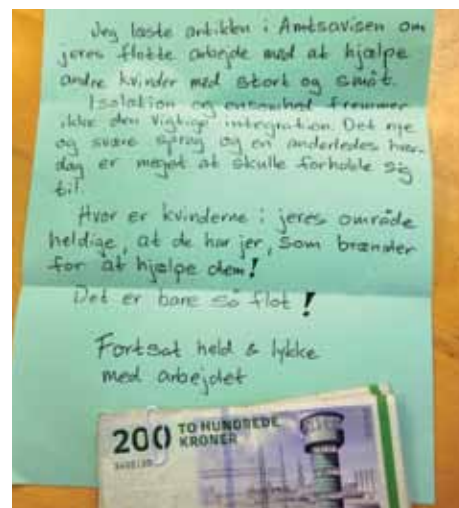 Jeg læste artiklen i Amtsavisen om
jeres flotte arbejde med at hjælpe
andre kvinder med stort og småt.
Isolation og ensomhed fremmer
ikke den vigtige integration. Det nye
og svære sprog og en anderledes hver-
dag er meget at skulle forholde sig
til.
Hvor er kvinderne i jeres område
heldige, at de har jer, som brænder
for at hjælpe dem!
Det er bare så flot!
Fortsat held & lykke
med arbejdet
200 TO HUNDREDE
KRONER